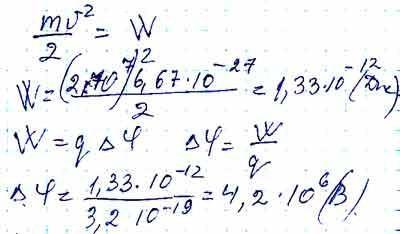 mv²/2 = W
W = (2·10⁷)² 6,67·10⁻²⁷ / 2 = 1,33·10⁻¹² (Дж)
W = q Δφ Δφ = W/q
Δφ = 1,33·10⁻¹² / 3,2 10⁻¹⁹ = 4,2·10⁶ (В)